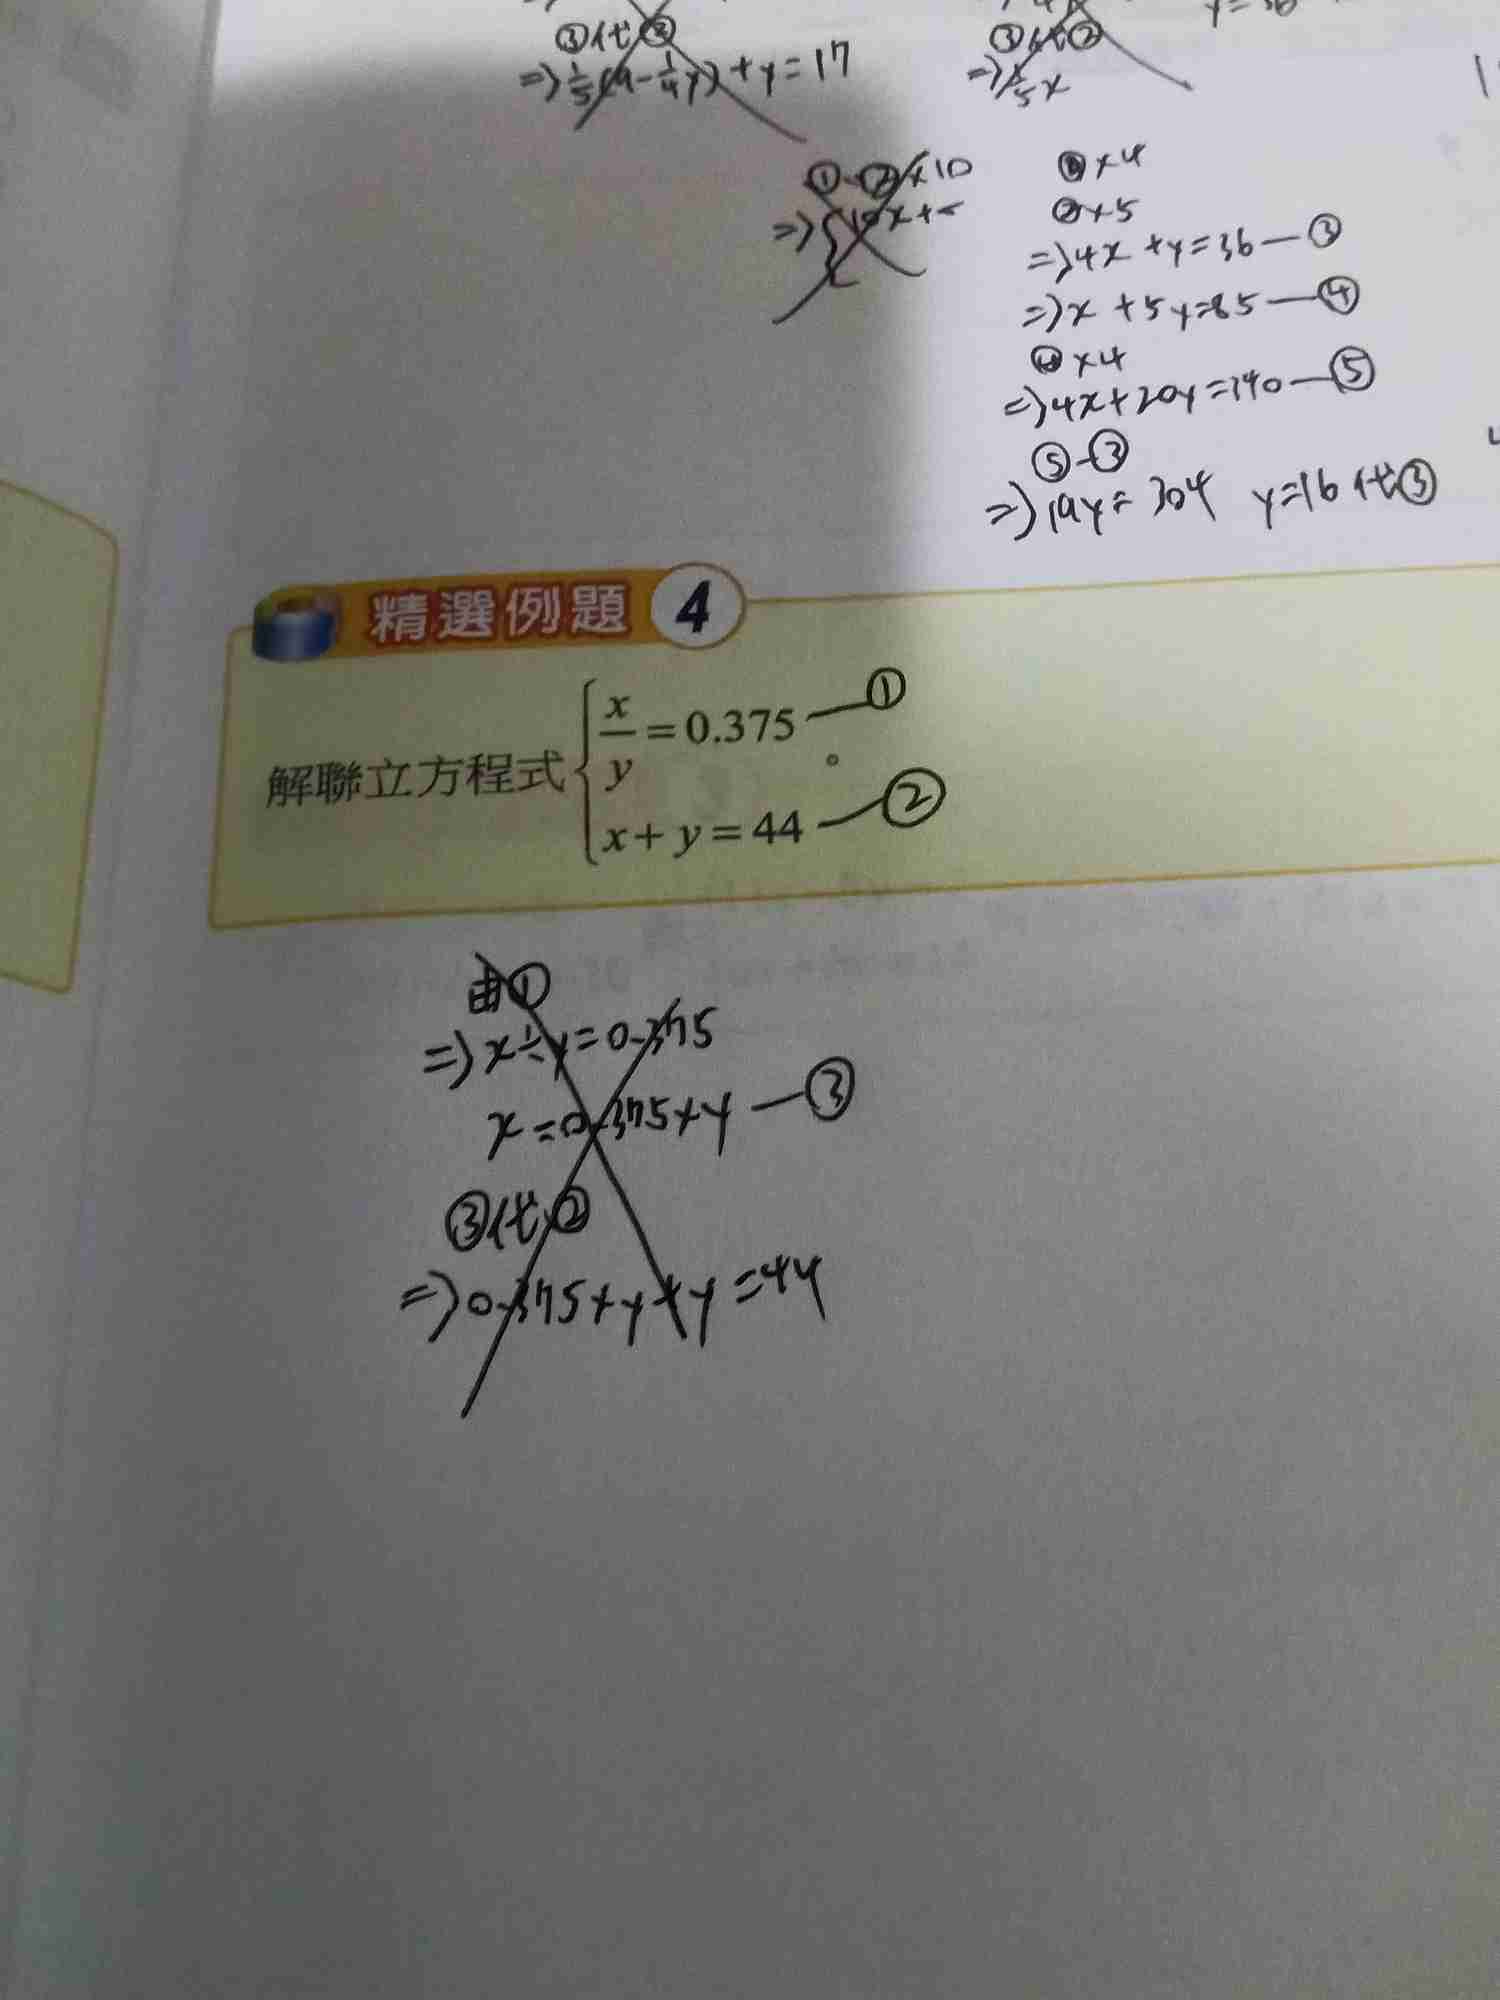 ③代③
⇒1/5(9-1/4y)+y=17
③代②
⇒1/5x
①-②×10
⇒{10x+5
①×4
②×5
⇒4x+y=36—③
⇒x+5y=85—④
④×4
⇒4x+20y=340—⑤
⑤-③
⇒19y=304 y=16代③
精選例題 4
解聯立方程式
x/y=0.375—①
x+y=44—②
。
由①
⇒x÷y=0.375
x=0.375+y—③
③代②
⇒0.375+y+y=44